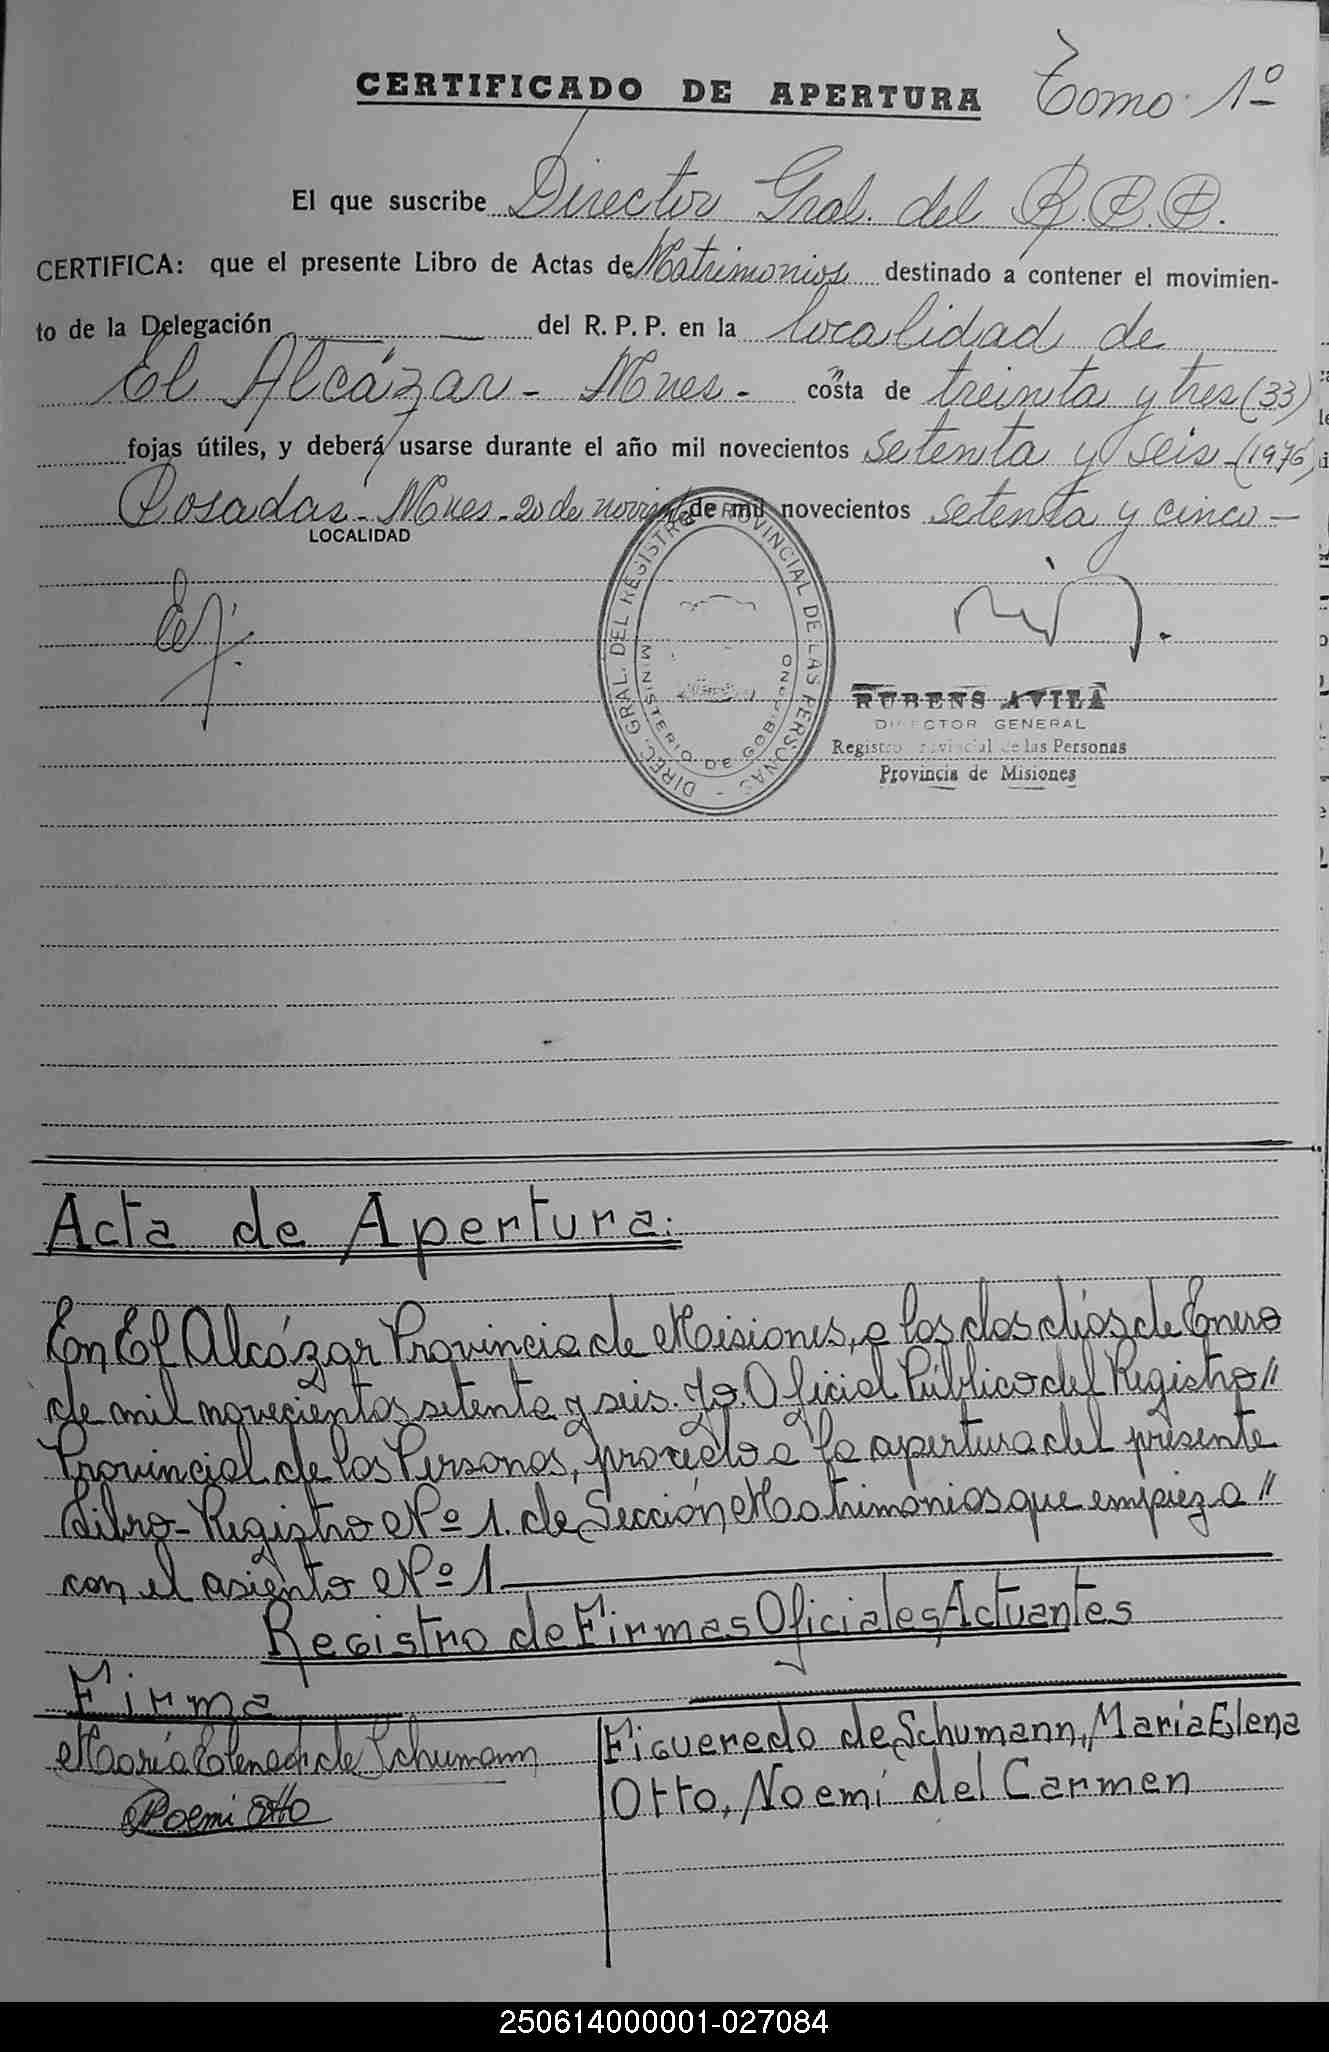 CERTIFICADO DE APERTURA Tomo 1º
El que suscribe Director Gral. del R.P.P.
CERTIFICA: que el presente Libro de Actas de Matrimonios destinado a contener el movimien-
to de la Delegación del R. P. P. en la localidad de
El Alcázar - Mnes - costa de treinta y tres (33)
fojas útiles, y deberá usarse durante el año mil novecientos setenta y seis - (1976)
Posadas - Mnes - 20 de de mil novecientos setenta y cinco -
LOCALIDAD
DIREC. GRAL. DEL REGISTRO PROVINCIAL DE LAS PERSONAS -
MINISTERIO DE GOBIERNO
RUBENS AVILA
DIRECTOR GENERAL
Registro Provincial de las Personas
Provincia de Misiones
Acta de Apertura:
En El Alcázar Provincia de Misiones, a los dos días de Enero
de mil novecientos setenta y seis. Yo. Oficial Público del Registro //
Provincial de las Personas, procedo a la apertura del presente
Libro - Registro Nº 1. de Sección Matrimonios que empieza //
con el asiento Nº 1
Registro de Firmas Oficiales Actuantes
Firma
María Elena de Schumann Figueredo de Schumann, María Elena
Noemi Otto Otto, Noemí del Carmen
250614000001-027084